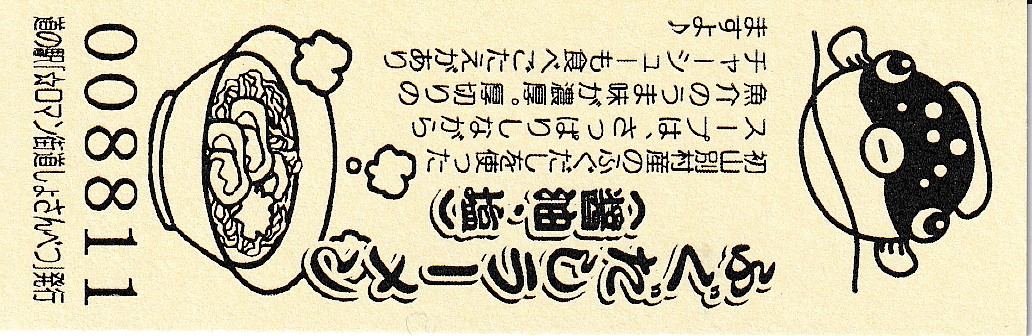 ふぐだしラーメン
（醤油・塩）
初山別村産のふぐだしを使った
スープは、さっぱりしながら
魚介のうま味が濃厚。厚切りの
チャーシューも食べごたえがあり
ますよ♪
008811
道の駅「☆ロマン街道しょさんべつ」発行